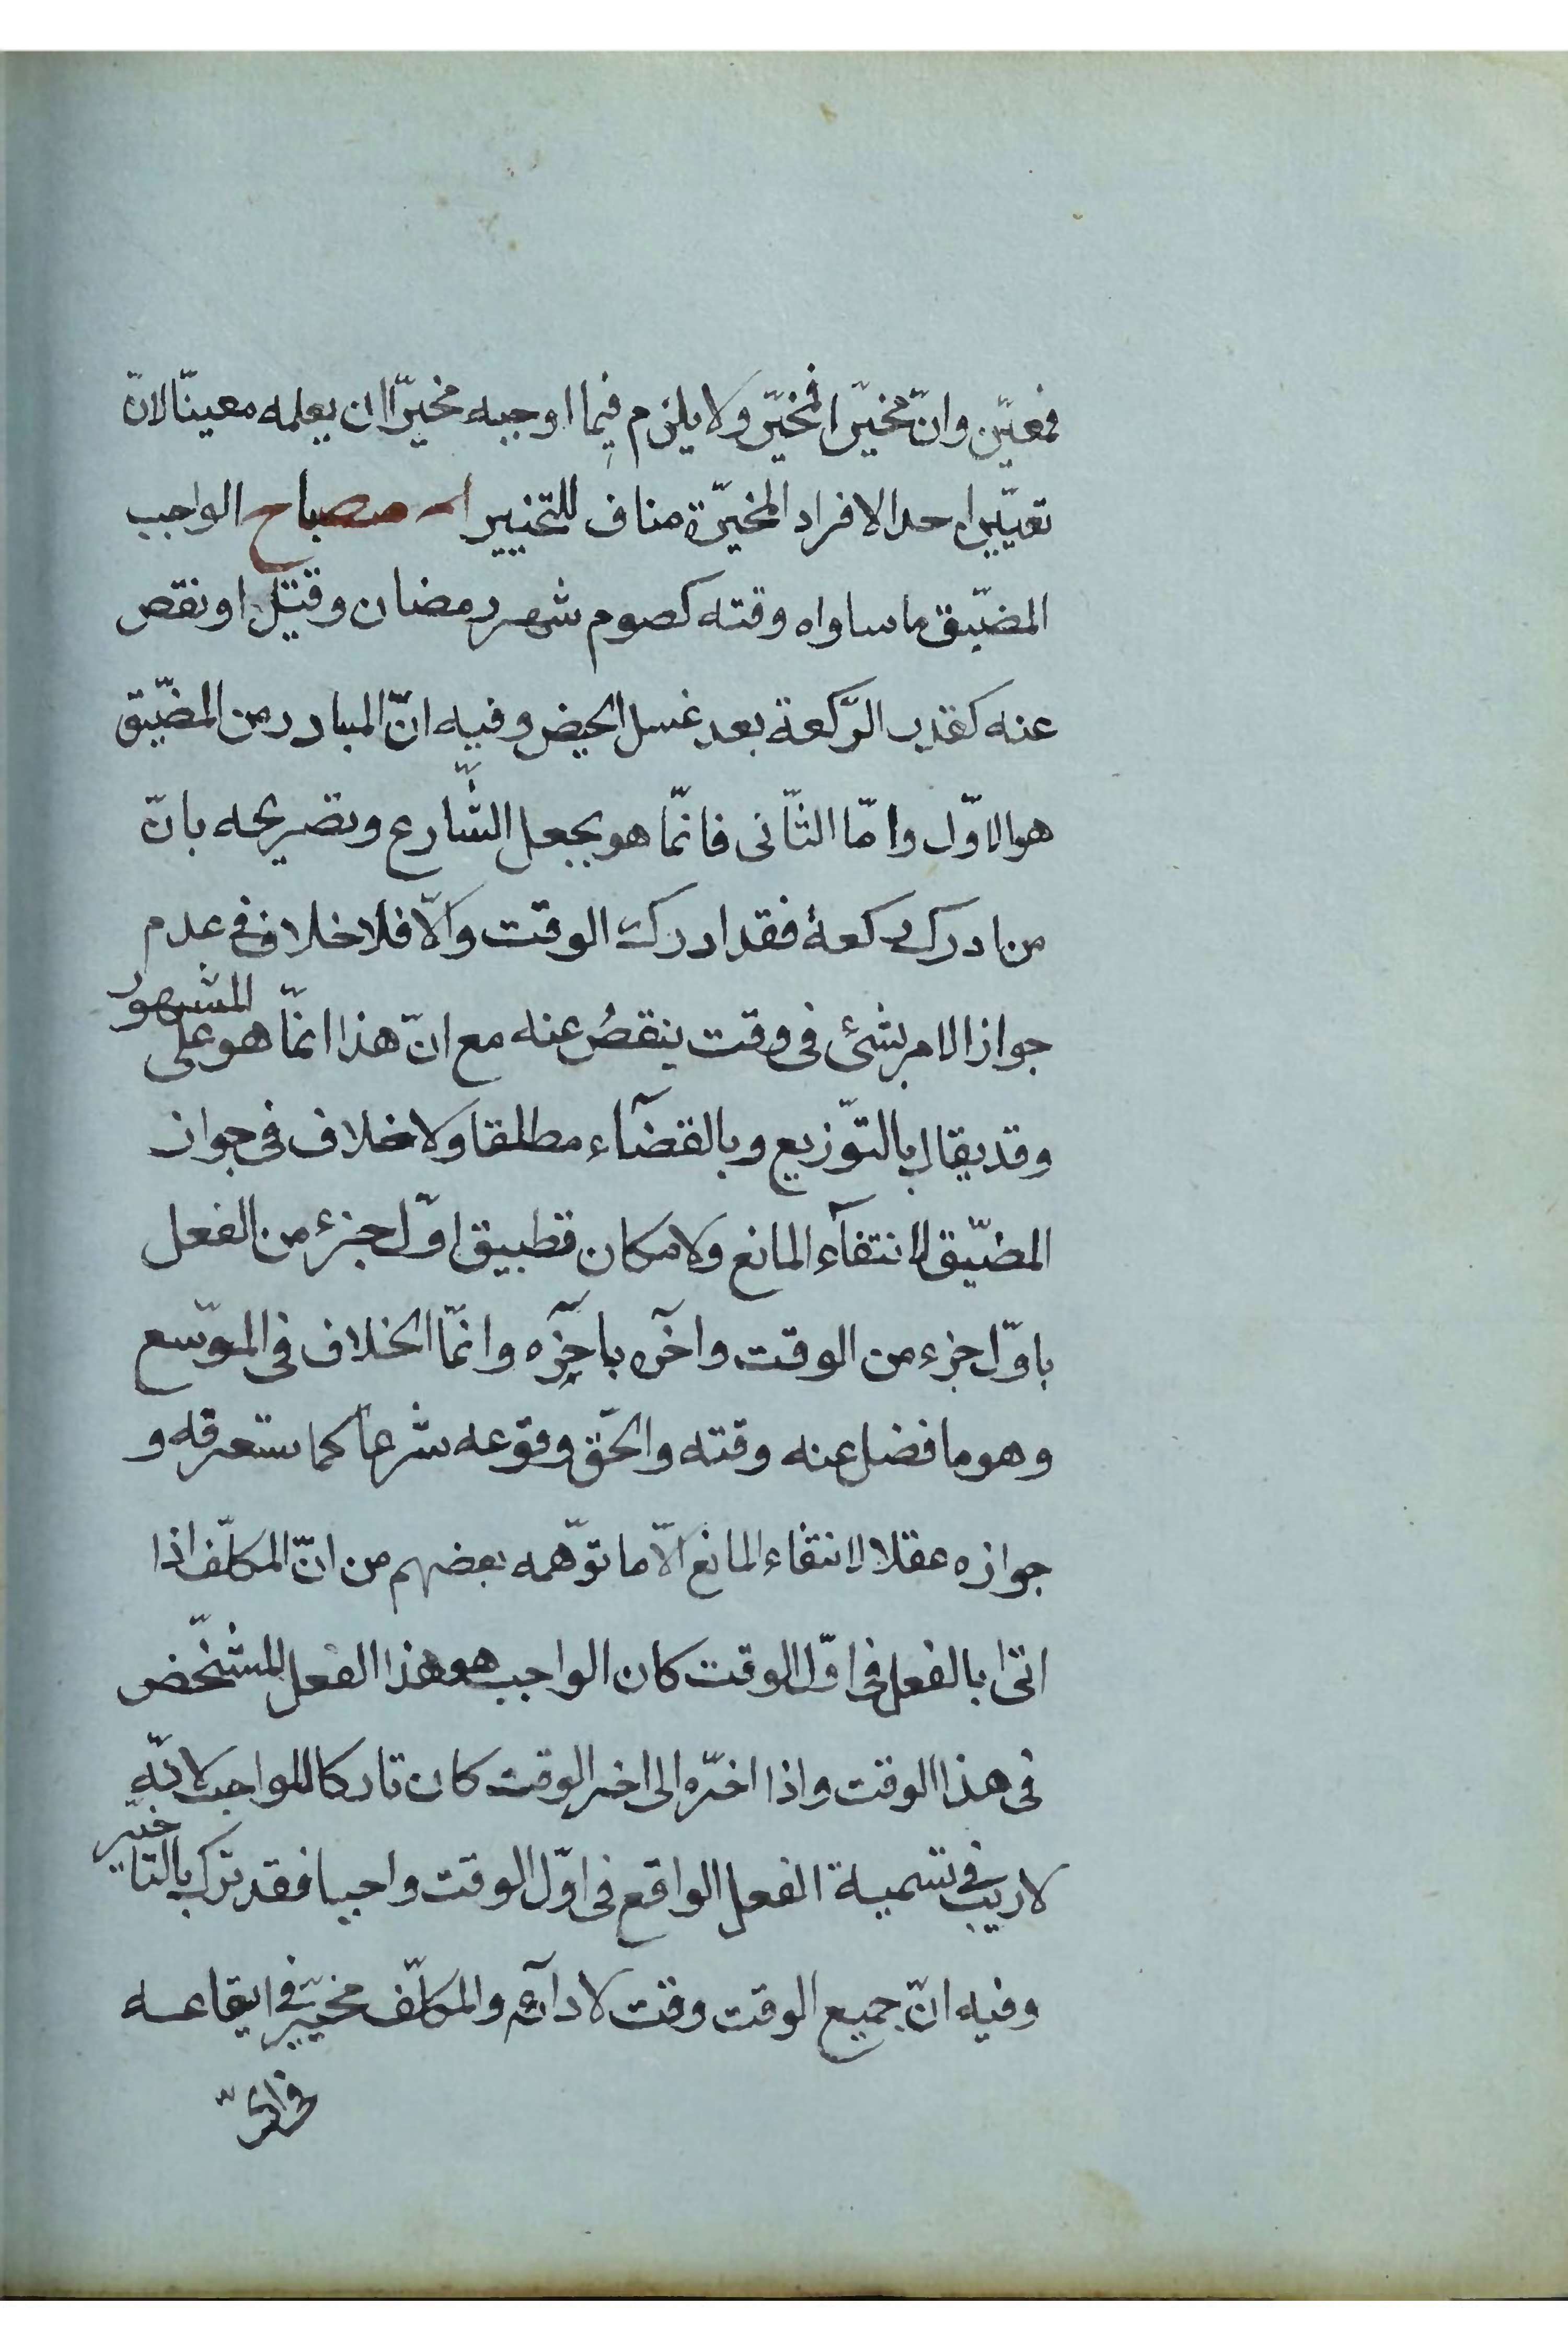 فمعيّن وانّ مخيّرا فمخيّر ولا يلزم فيما اوجبه مخيّرا ان يعلمه معينّا لانّ
تعيّين احد الافراد المخيّرة مناف للتخيير مصباح الواجب
المضّيق ما ساواه وقته كصوم شهر رمضان وقيل او نقص
عنه كقدر الرّكعة بعد غسل الحيض وفيه انّ المبادر من المضّيق
هو الاوّل وامّا الثّانى فانّما هو بجعل الشّارع وتصريحه بانّ
من ادرك ركعة فقد ادرك الوقت والّا فلا خلاف فى عدم
جواز الامر بشئ فى وقت ينقصُ عنه مع انّ هذا انمّا هو على المشهور
وقد يقال بالتّوزيع وبالقضآء مطلقا ولا خلاف فى جواز
المضّيق لانتفآء المانع ولامكان تطبيق اوّل جزء من الفعل
باوّل جزء من الوقت واخره باخره وانمّا الخلاف فى الموّسع
وهو ما فضل عنه وقته والحّق وقوعه شرعا كما ستعرفه و
جوازه عقلا لانتفاء المانع الّا ما توّهمه بعضهم من انّ المكلّف اذا
اتى بالفعل فى اوّل الوقت كان الواجب هو هذا الفعل المشخّص
فى هذا الوقت واذا اخّره الى اخر الوقت كان تاركا للواجب لانّه
لا ريب فى تسمية الفعل الواقع فى اوّل الوقت واجبا فقد ترك بالتاخير
وفيه انّ جميع الوقت وقت لادآئه والمكلّف مخيّر فى ايقاعه